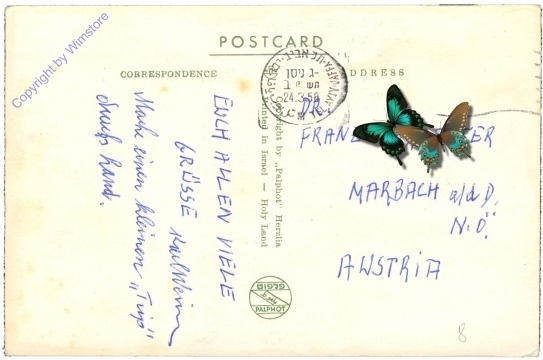 Copyright by Wimstore
POSTCARD
CORRESPONDENCE
ADDRESS
EUCH ALLEN VIELE
GRÜSSE
Mache einen kleinen „Trip"
durchs Land.
Copyright by „Palphot" Herzlia
Printed in Israel — Holy Land
24.3.58
DR.
FRAN
MARBACH a/d D.
N.Ö.
AUSTRIA
PALPHOT
8